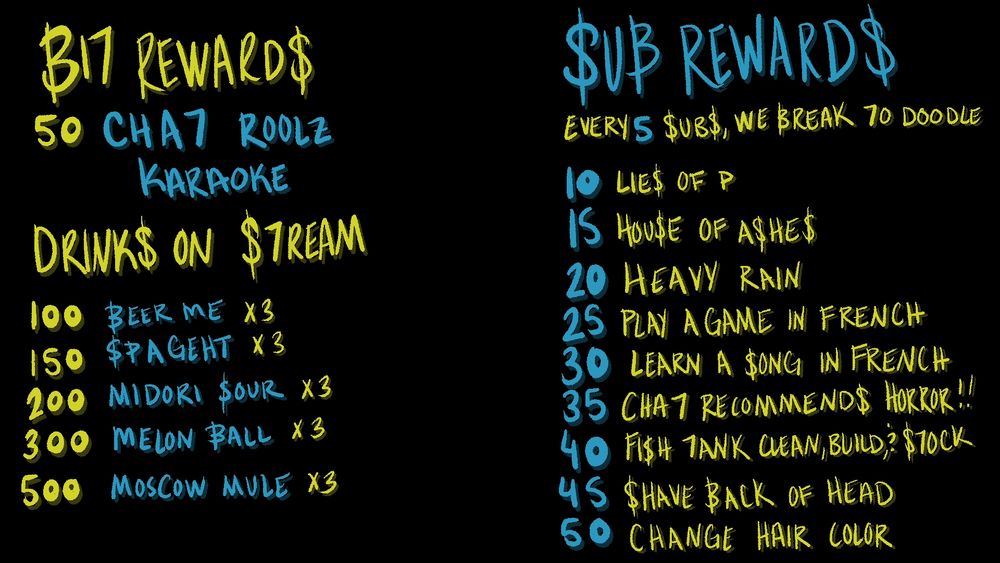 BIT REWARD$
50 CHAT ROOLZ
KARAOKE
DRINK$ ON $TREAM
100 BEER ME X3
150 $PAGEHT X3
200 MIDORI $OUR X3
300 MELON BALL X3
500 MOSCOW MULE X3
$UB REWARD$
EVERY 5 $UB$, WE BREAK TO DOODLE
10 LIE$ OF P
15 HOU$E OF A$HE$
20 HEAVY RAIN
25 PLAY A GAME IN FRENCH
30 LEARN A $ONG IN FRENCH
35 CHAT RECOMMEND$ HORROR!!
40 FI$H TANK CLEAN, BUILD, & $TOCK
45 $HAVE BACK OF HEAD
50 CHANGE HAIR COLOR